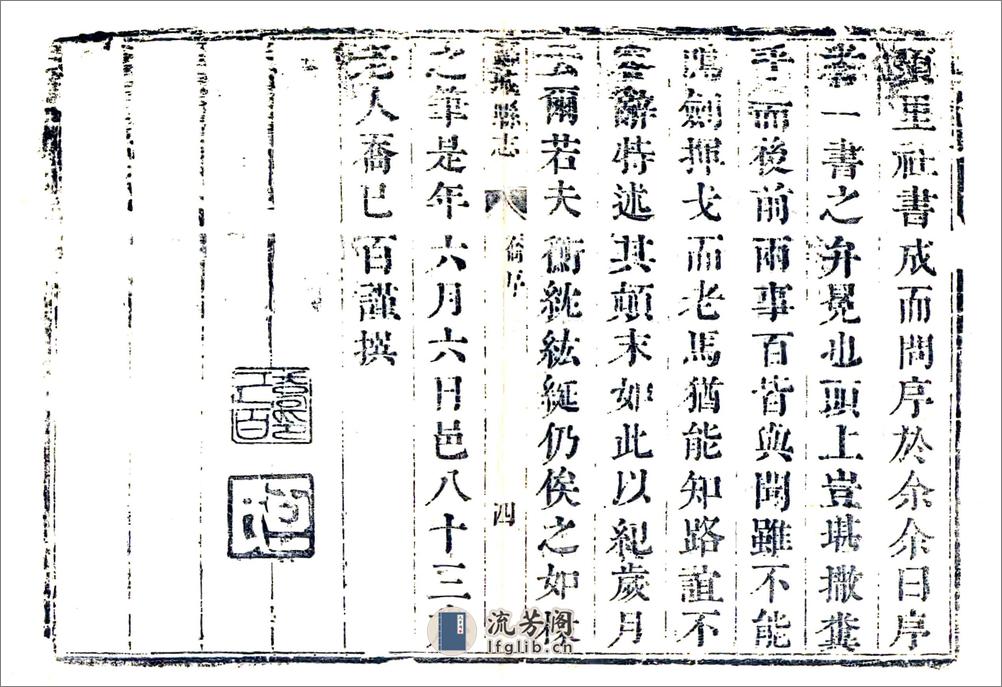 里社書成而問序於余余曰序
一書之弁冕也頭上豈堪撒糞
乎而後前兩事百皆與聞雖不能
劍揮戈而老馬猶能知路誼不
辭特述其顛末如此以紀歲月
云爾若夫衡紞紘綖仍俟之如
縣志
喬序
四
之筆是年六月六日邑八十三
老人喬巳百謹撰
流芳阁
lfglib.cn